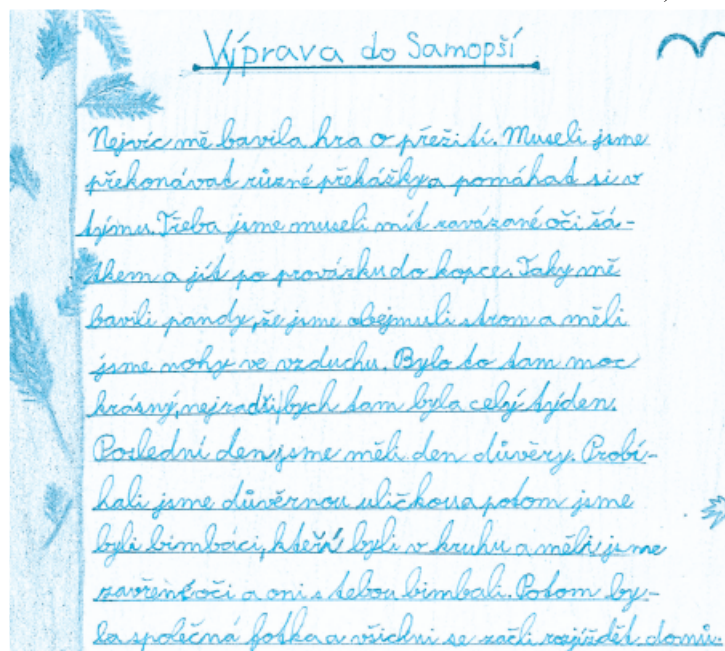 Výprava do Samopší
Nejvíc mě bavila hra o přežití. Museli jsme
překonávat různé překážky a pomáhat si v
týmu. Třeba jsme museli mít zavázané oči šá-
tkem a jít po provázku do kopce. Taky mě
bavili pandy, že jsme obejmuli strom a měli
jsme nohy ve vzduchu. Bylo to tam moc
krásný, nejradši bych tam byla celý týden.
Poslední den jsme měli den důvěry. Probí-
hali jsme důvěrnou uličkou a potom jsme
byli bimbáci, kteří byli v kruhu a měli jsme
zavřené oči a oni s tebou bimbali. Potom by-
la společná fotka a všichni se začli rozjíždět domů.